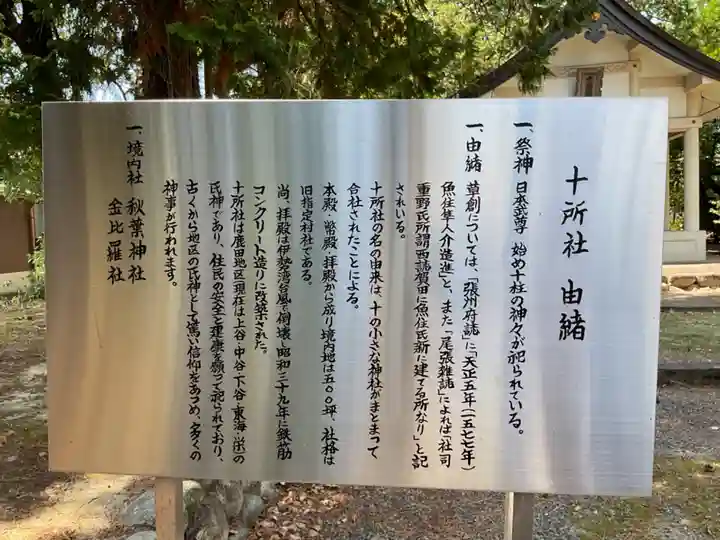 十所社 由緒
一、祭神 日本武尊 始め十柱の神々が祀られている。
一、由緒 草創については、「張州府誌」に「天正五年(一五七七年)
魚住隼人介造進」と、また「尾張雑誌」によれば「社司
重野氏所謂西誌賀田に魚住氏新に建てる所なり」と記
されいる。
十所社の名の由来は、十の小さな神社がまとまって
合社されたことによる。
本殿・幣殿・拝殿から成り境内地は五〇〇坪、社格は
旧指定村社である。
尚、拝殿は伊勢湾台風で倒壊し昭和三十九年に鉄筋
コンクリート造りに改築された。
十所社は鹿田地区(現在は上谷・中谷・下谷・東海・栄)の
氏神であり、住民の安全と健康を願って祀られており、
古くから地区の氏神として篤い信仰をあつめ、多くの
神事が行われます。
一、境内社 秋葉神社
金比羅社